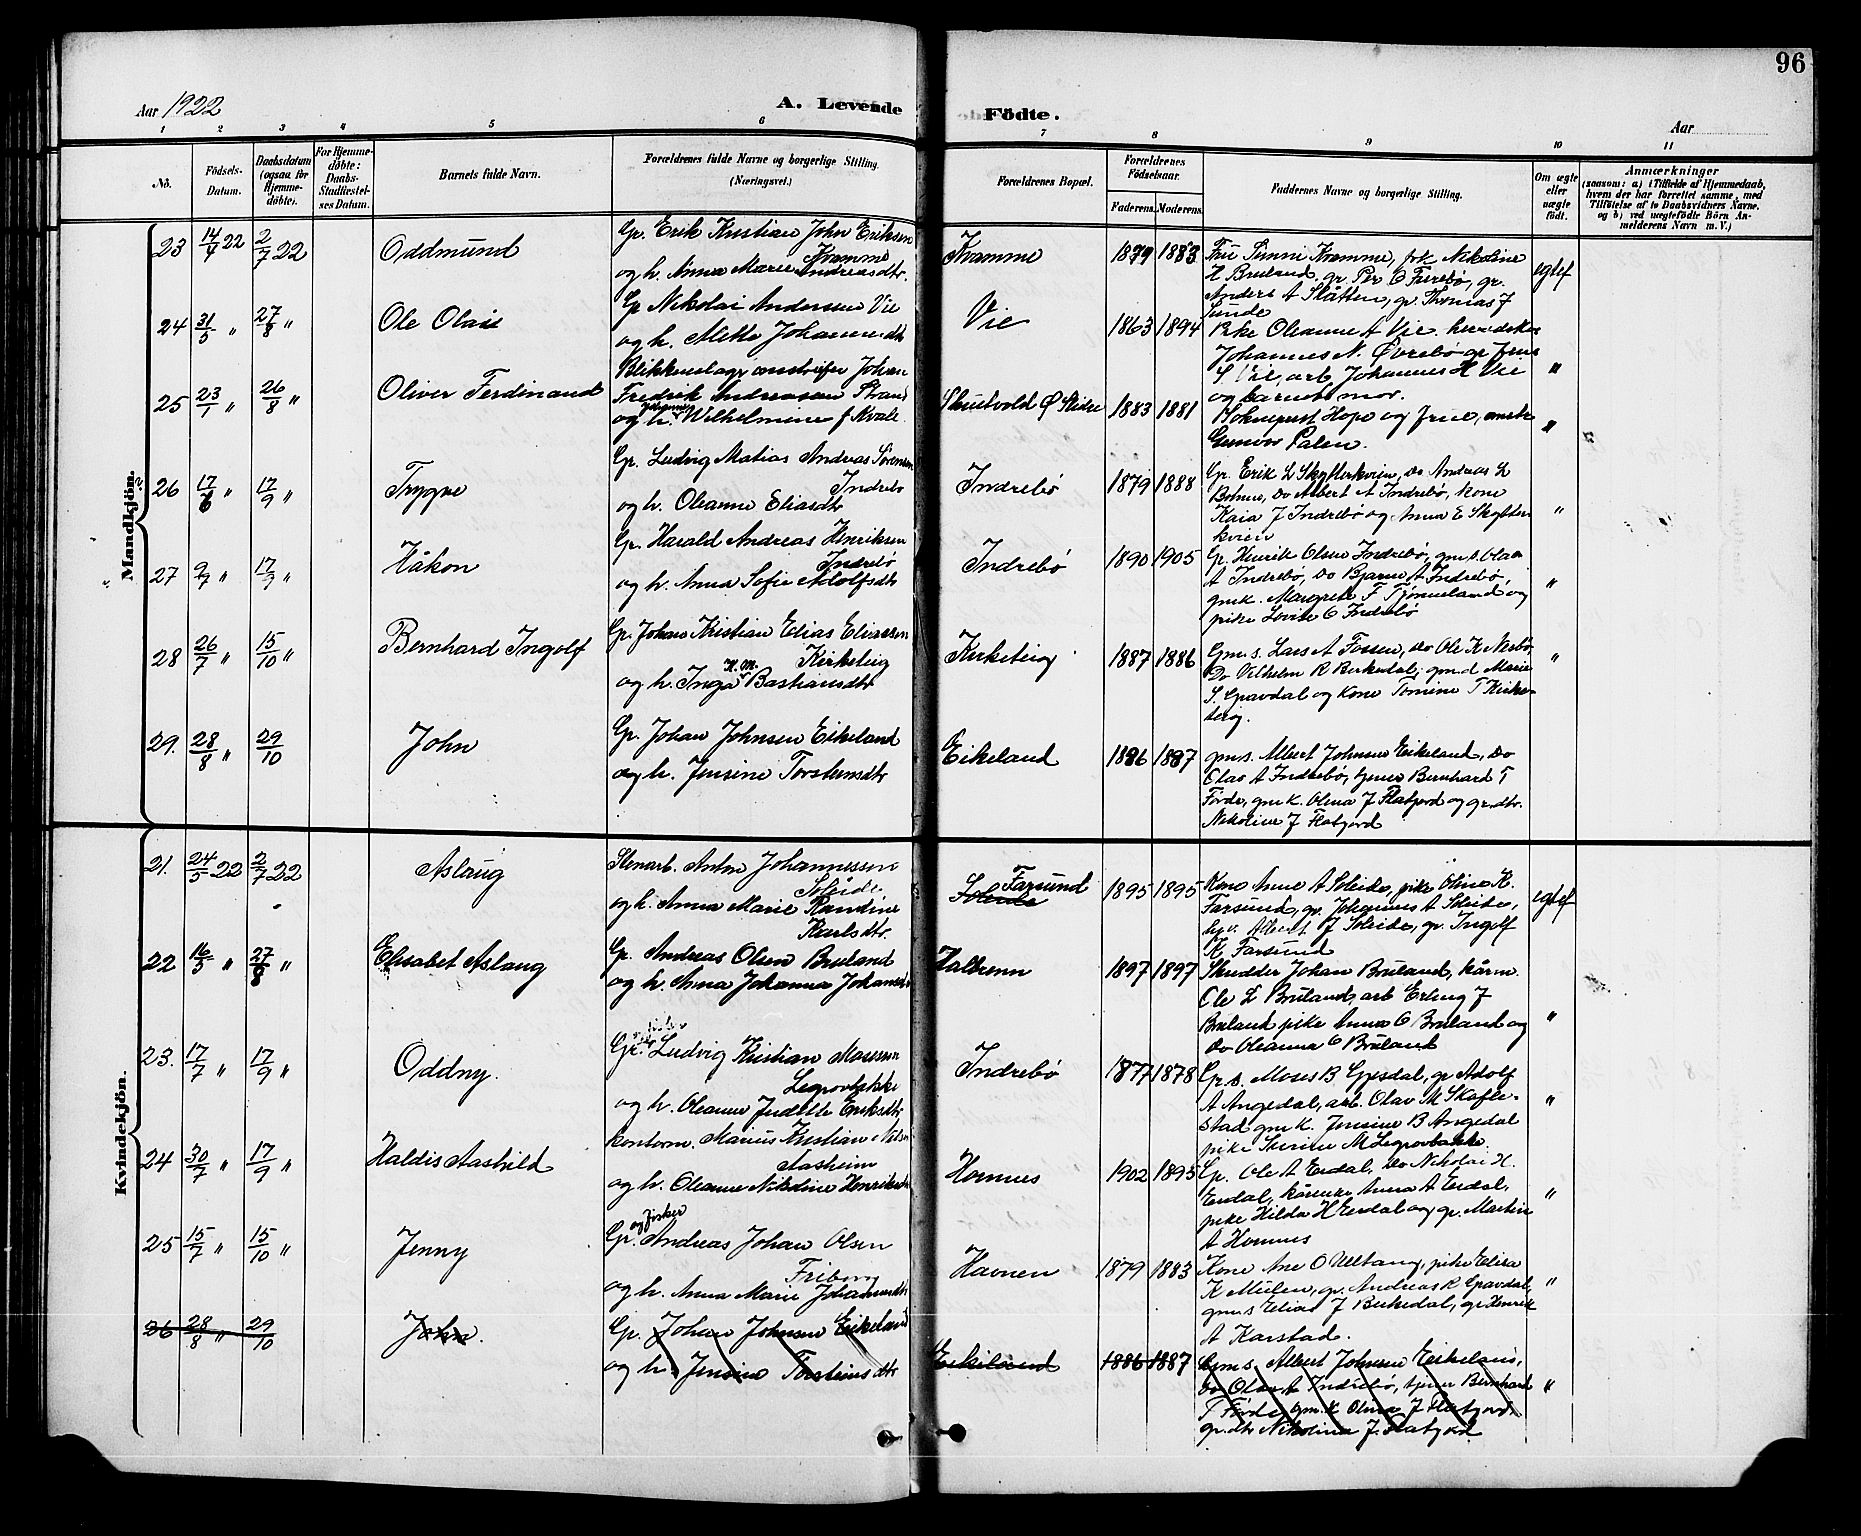 96
Aar 1922
A. Levende
Födte.
Aar
1 2 3 4 5 6 7 8 9 10 11
No.
Födsels-
Datum.
Daabsdatum
(ogsaa for
Hjemme-
döbte).
For Hjemme-
döbte:
Daabs-
Stadfæstel-
ses Datum.
Barnets fulde Navn.
Forældrenes fulde Navne og borgerlige Stilling.
(Næringsvei.)
Forældrenes Bopæl.
Forældrenes
Födselsaar.
Faderens. Moderens.
Faddernes Navne og borgerlige Stilling.
Om ægte
eller
uægte
födt.
Anmærkninger
(saasom: a) i Tilfælde af Hjemmedaab,
hvem der har forrettet samme, med
Tilföielse af to Daabsvidners Navne,
og b) ved uægtefödte Börn An-
melderens Navn m. V.)
Mandkjön.
23 14/4 22 2/7 22 Oddmund
Gr. Erik Kristian John Eriksen
Kramme
og h. Anna Marie Andreasdtr
Kramme 1879 1883
Fru Timmi Kramme, frk Nikoline
H Bruland, gr. Per O Furebø, gr.
Anders A Slåtten, gr. Thomas J
Sunde
egtef
24 31/5 " 27/8 " Ole Olai
Gr Nikolai Andersen Vie
og h. Mette Johannesdtr
Vie 1863 1894
Pike Oleanne A Vie,
Johannes N. Øvrebø gr Jens
S. Vie, arb. Johannes H Vie
og barnets mor.
"
25 23/1 " 26/8 " Oliver Ferdinand
Blikkenslager Johan
Fredrik Andreassen Strand
og h. Wilhelmine f Kvale
Skrutvold Ø Slidre 1883 1881
Hope og frue,
Gunvor Palen.
"
26 17/6 " 17/9 " Trygve
Gr. Ludvig Matias Andreas Sørensen
Indrebø
og h. Oleanne Eliasdtr
Indrebø 1879 1888
Gr. Erik L Skytterkveien, Do Andreas L
Bolme, Do Albert A Indrebø, Kone
Kaia J Indrebø og Anna E Skytter-
kveien
"
27 9/7 " 17/9 " Håkon
Gr. Harald Andreas Henriksen
Indrebø
og h. Anna Sofie Adolfsdtr
Indrebø 1890 1905
Gr. Henrik Olsen Indrebø, gm.s. Olav
A Indrebø, Do Bjarne A Indrebø,
gmk. Margrete F Tjønneland og
pike Lovise O Indrebø
"
28 26/7 " 15/10 " Bernhard Ingolf
Gr. Johan Kristian Elias Eliassen
K.M. Kirketeig
og h. Inga Bastiansdtr
Kirketeig 1887 1886
Gm.s. Lars A Fossen, Do Ole K Nesbø,
Do Vilhelm R Birkedal, gm.d. Marie
S. Gravdal og Kone Tomine T Kirke-
teig.
"
29. 28/8 " 29/10 John
Gr. Johan Johnsen Eikeland
og h. Jensine Torsteinsdtr
Eikeland 1886 1887
gm.s. Albert Johnsen Eikeland, Do
Olav A Indrebø, tjener Bernhard T
Førde, gm.k. Olina J Flatjord og gr.dtr.
Nikoline J Flatjord
Kvindekjön.
21. 24/5 22 2/7 22 Aslaug
Stenarb. Anton Johannessen
Soleide
og h. Anna Marie Randine
Karlsdtr.
Soleide Farsund 1895 1895
Kone Anne A Soleide, pike Oline K.
Farsund, gr. Johannes A Soleide,
Albert J Soleide, gr. Ingolf
K Farsund
egtef
22 16/5 " 27/8 " Elisabet Aslaug
Gr. Andreas Olsen Bruland
og h. Anna Johanna Johansdtr
Halbrenn 1897 1897
Skredder Johan Bruland, kårm.
Ole L Bruland, arb Erling J
Bruland pike Anna O Bruland og
Do Oleanna O Bruland
"
23. 17/7 " 17/9 " Oddny.
Gr. Ludvig Kristian Mosessen
Legrovbakke
og h. Oleanne Juditte Eriksdtr
Indrebø 1877 1878
Gr.s. Moses B Gjesdal, gr Adolf
A Angedal, arb. Olav M Skafle-
stad gm.k. Jensine B Angedal
pike Sirine M Legrovbakke.
"
24 30/7 " 17/9 " Haldis Aashild
Kontorm. Marius Kristian Nilsen
Aasheim
og h. Oleanne Nikoline Henriksdtr
Hornnes 1902 1895
Gr. Ole A Erdal, Do Nikolai H.
Erdal, kårenke Anna A Erdal,
pike Hilda H Erdal og gr. Martin
A Hornnes
"
25 15/7 " 15/10 " Jenny
og fisker
Gr. Andreas Johan Olsen
Friborg
og h. Anna Marie Johannesdtr
Havnen 1879 1883
Kone Ane O Ulltang, pike Elisa
K Mulen, gr. Andreas R Gravdal,
gm.s Elias J Birkedal, gr Henrik
A Karstad.
"
26 28/8 " 29/10 John.
Gr. Johan Johnsen Eikeland
og h. Jensine Torsteinsdtr
Eikeland 1886 1887
Gm.s. Albert Johnsen Eikeland,
Do Olav A Indrebø, tjener Bernhard
T Førde gm.k Olina J Flatjord,
gr.dtr Nikolina J. Flatjord
"